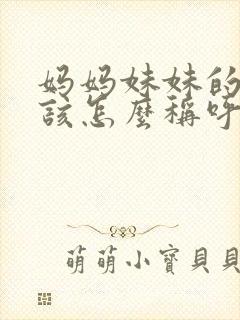 妈妈妹妹的
該怎麼稱呼
萌萌小寶貝